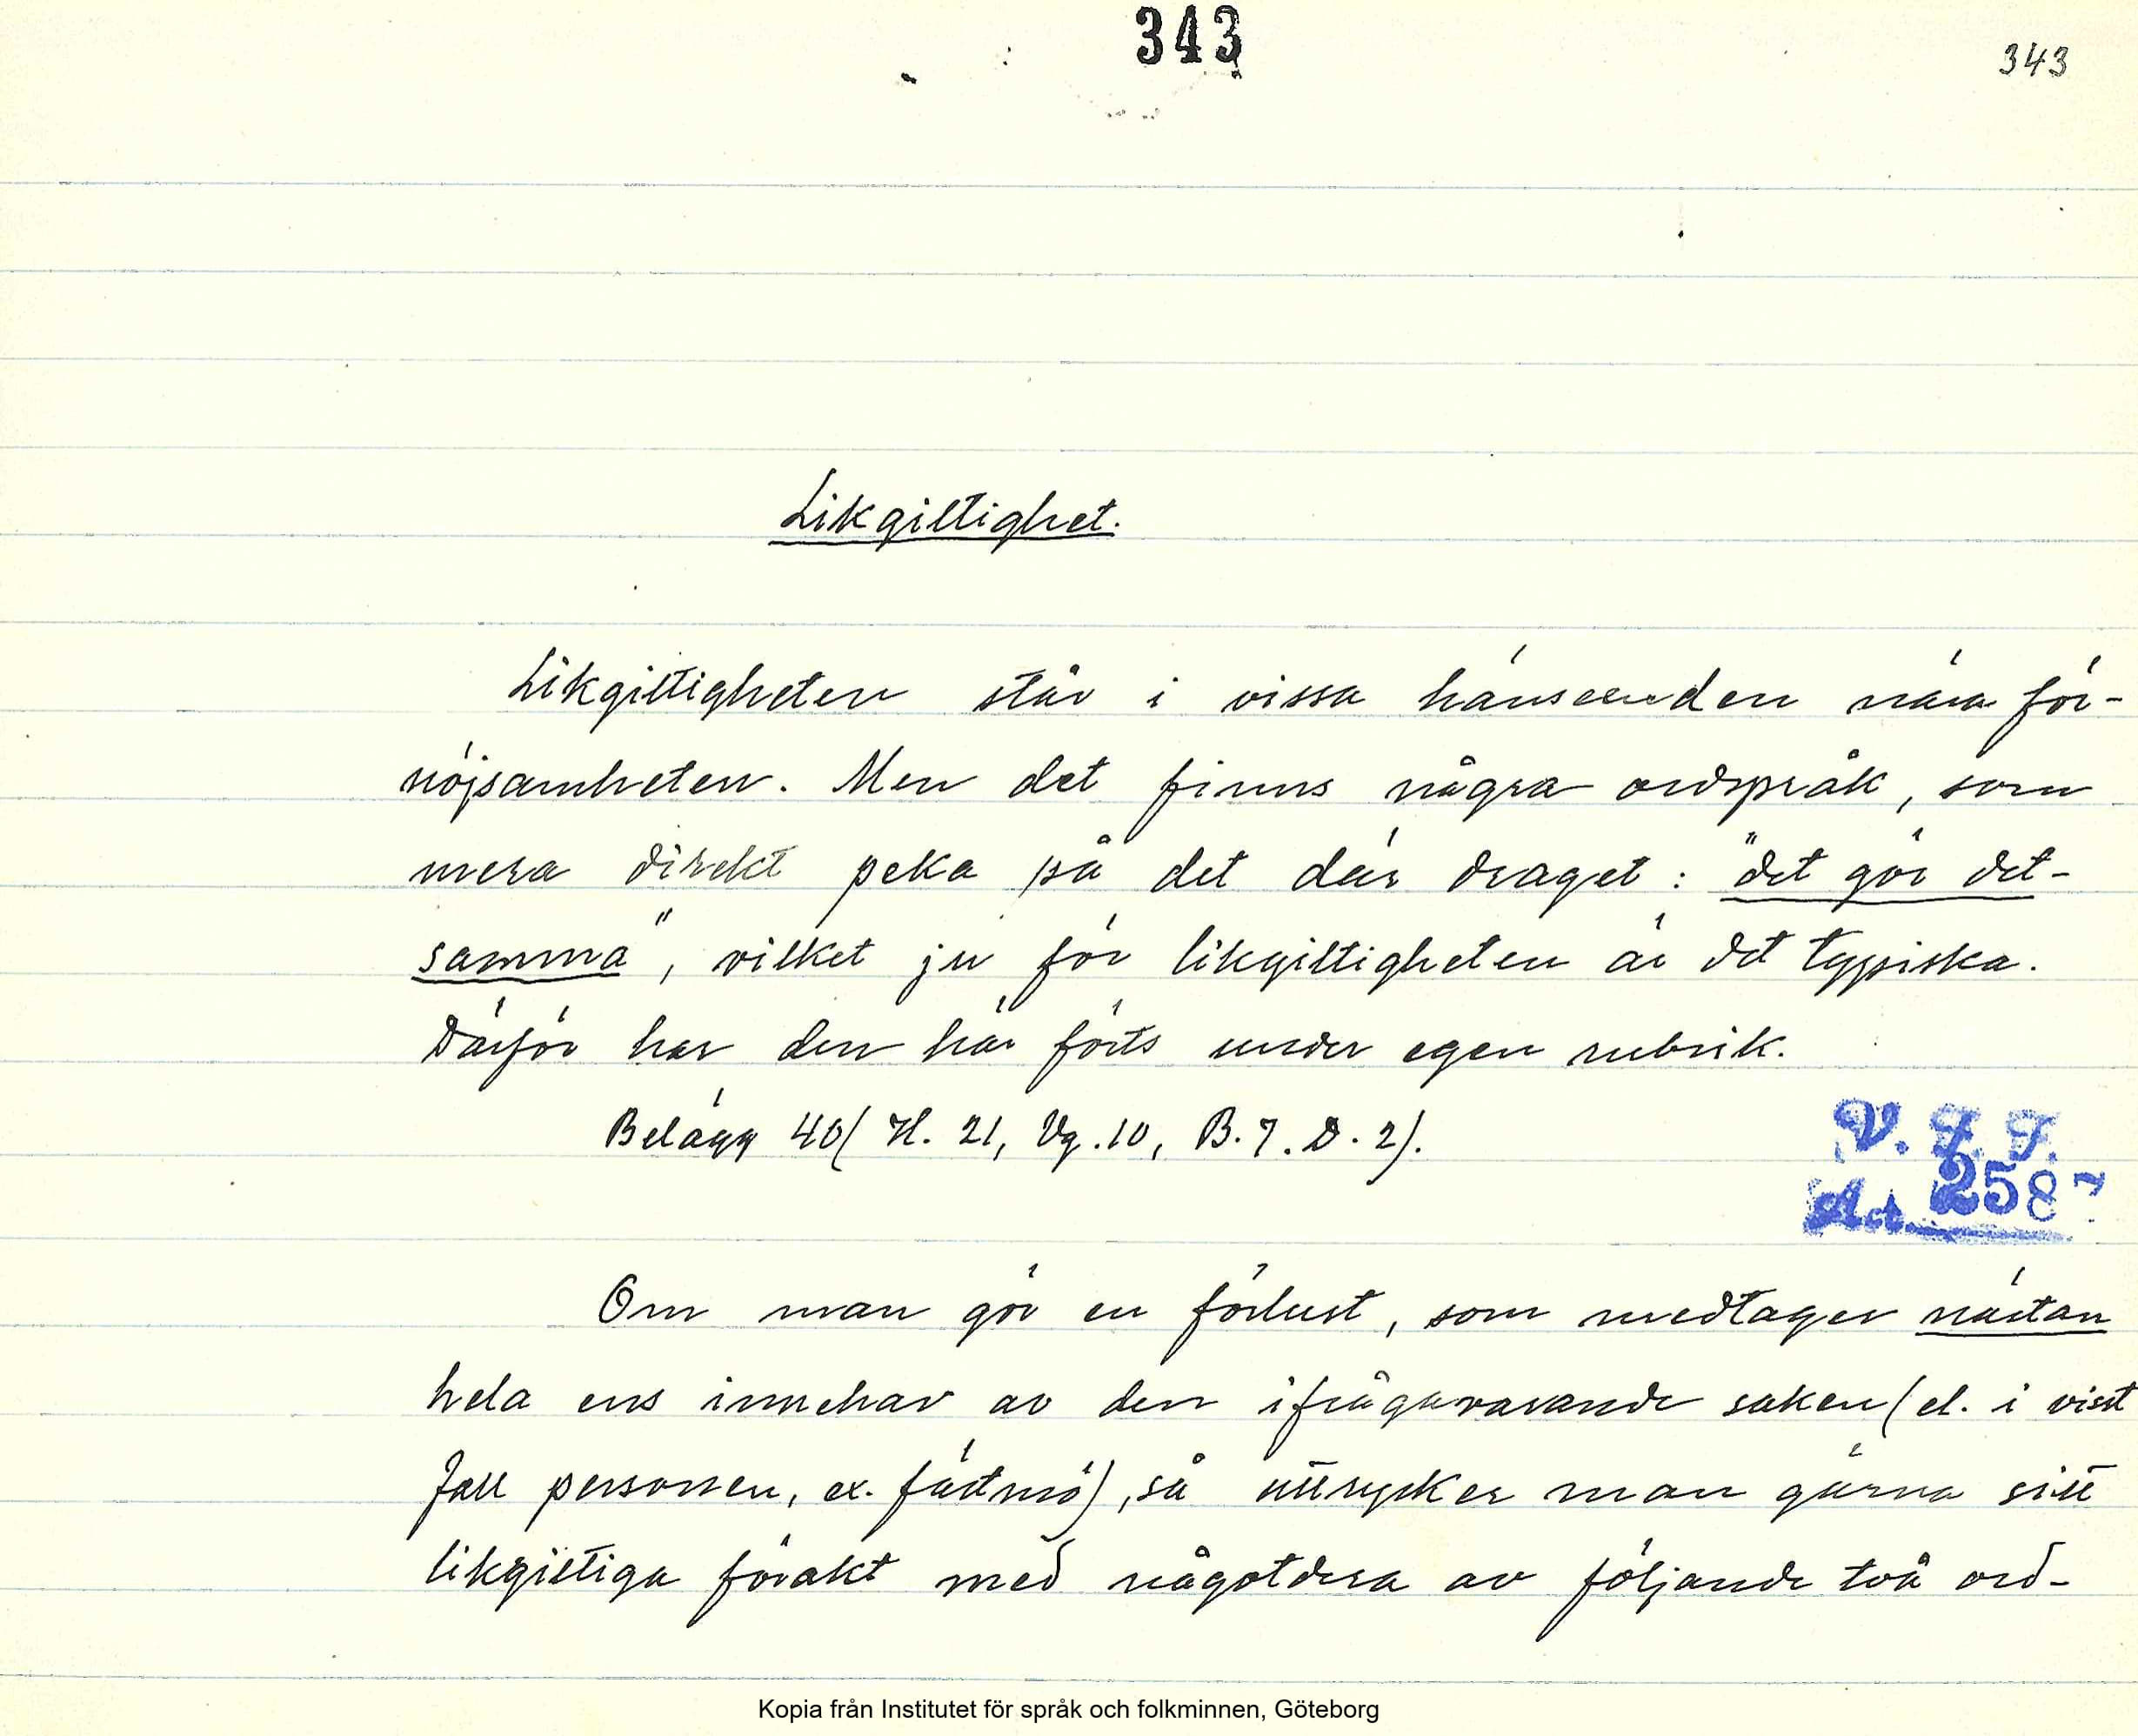 343
343
Likgiltighet.
Likgiltigheten står i vissa hänseenden nära för-
nöjsamheten. Men det finns några ordspråk, som
mera direkt peka på det där draget: "det gör det-
samma", vilket ju för likgiltigheten är det typiska.
Därför har den här förts under egen rubrik.
Belägg 40 (H. 21, Vg. 10, B. 7. D. 2).
V. F. F.
258
Om man gör en förlust, som medtager nästan
hela ens innehav av den ifrågavarande saken (el. i visst
fall personen, ex. fästmö), så uttrycker man gärna sitt
likgiltiga förakt med någotdera av följande två ord-
Kopia från Institutet för språk och folkminnen, Göteborg